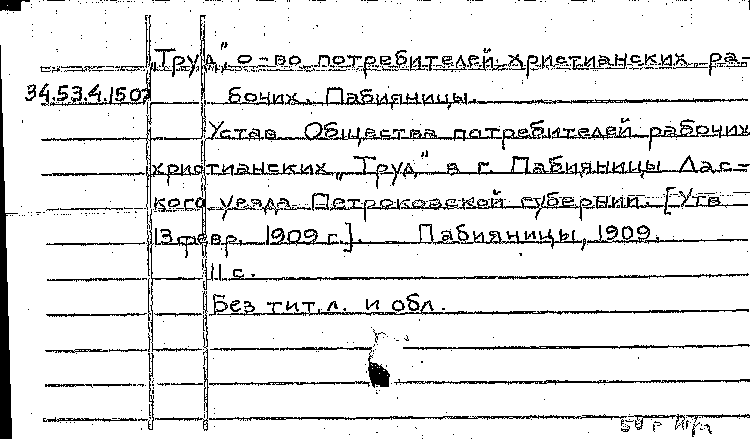 „Труд", о-во потребителей христианских ра-
34.53.4.1507 бочих. Пабияницы.
Устав Общества потребителей рабочих
христианских „Труд" в г. Пабияницы Лас-
кого уезда Петроковской губернии. [Утв
13 февр. 1909 г.]. Пабияницы, 1909.
11 с.
Без тит. л. и обл.